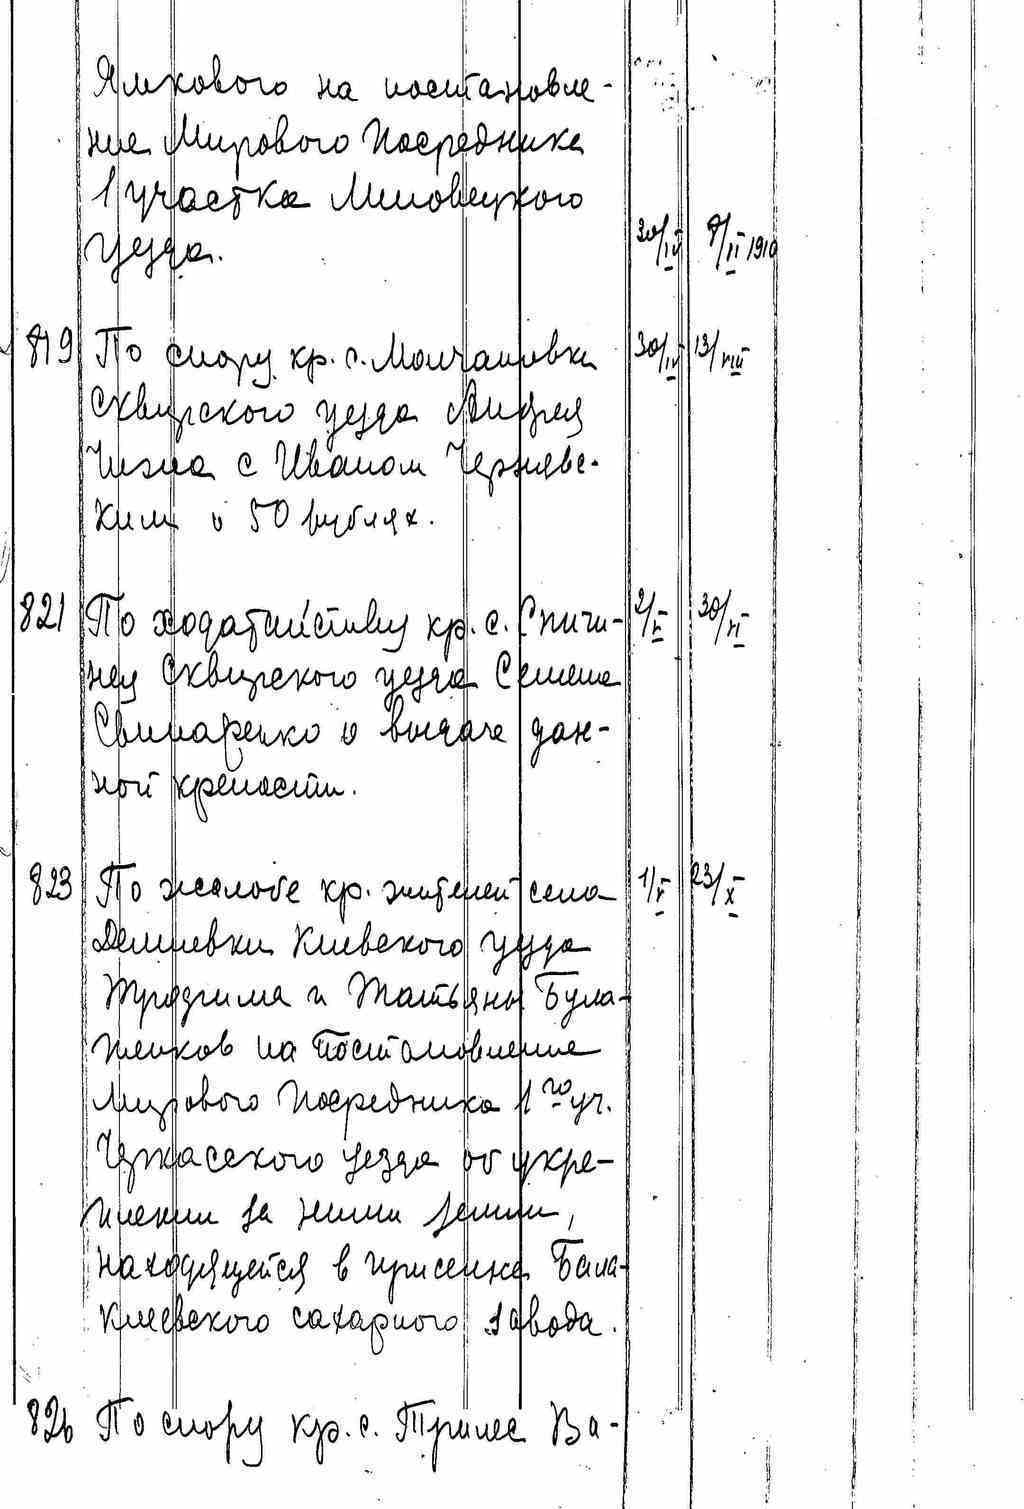 на постановле-
ние Мирового Посредника
1 участка Липовецкого
уезда. 30/IV 9/II 1910
819 По спору кр. с. Молчановки 30/IV 13/VIII
Сквирского уезда Андрея
Чижа с Иваном Чернявс-
ким о 50 рублях.
821 По ходатайству кр. с. Спичи- 2/V 30/VI
нец Сквирского уезда Семена
Свинаренко о выдаче дан-
ной крепости.
823 По жалобе кр. жителей села 1/V 23/X
Демиевки Киевского уезда
и Татьяны Була-
на постановление
Мирового Посредника 1го уч.
Черкасского уезда об укре-
плении за ними земли,
находящейся в присёлке Бала-
клеевского сахарного завода.
826 По спору кр. с. Трилес Ва-